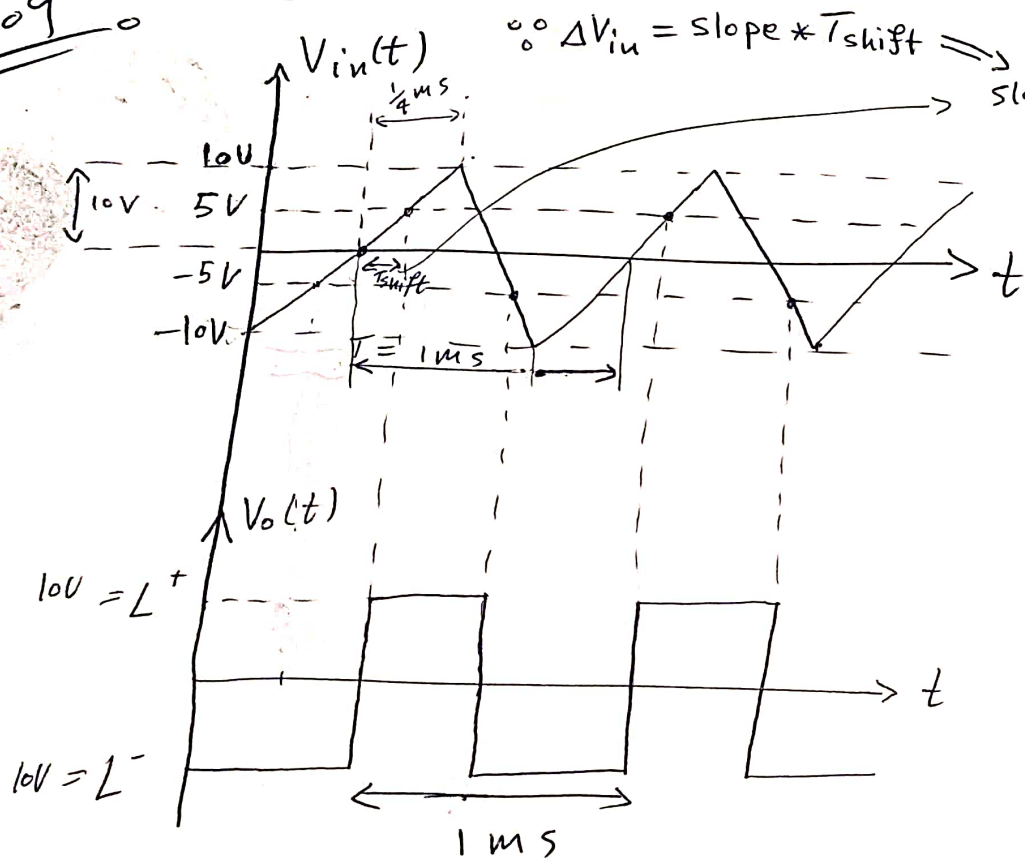 09
∵ ΔVin = slope * Tshift ⟹
Vin(t)
1/4 ms
10V
10V
5V
-5V
-10V
Tshift
t
T = 1ms
Vo(t)
10V = L+
t
10V = L-
1 ms